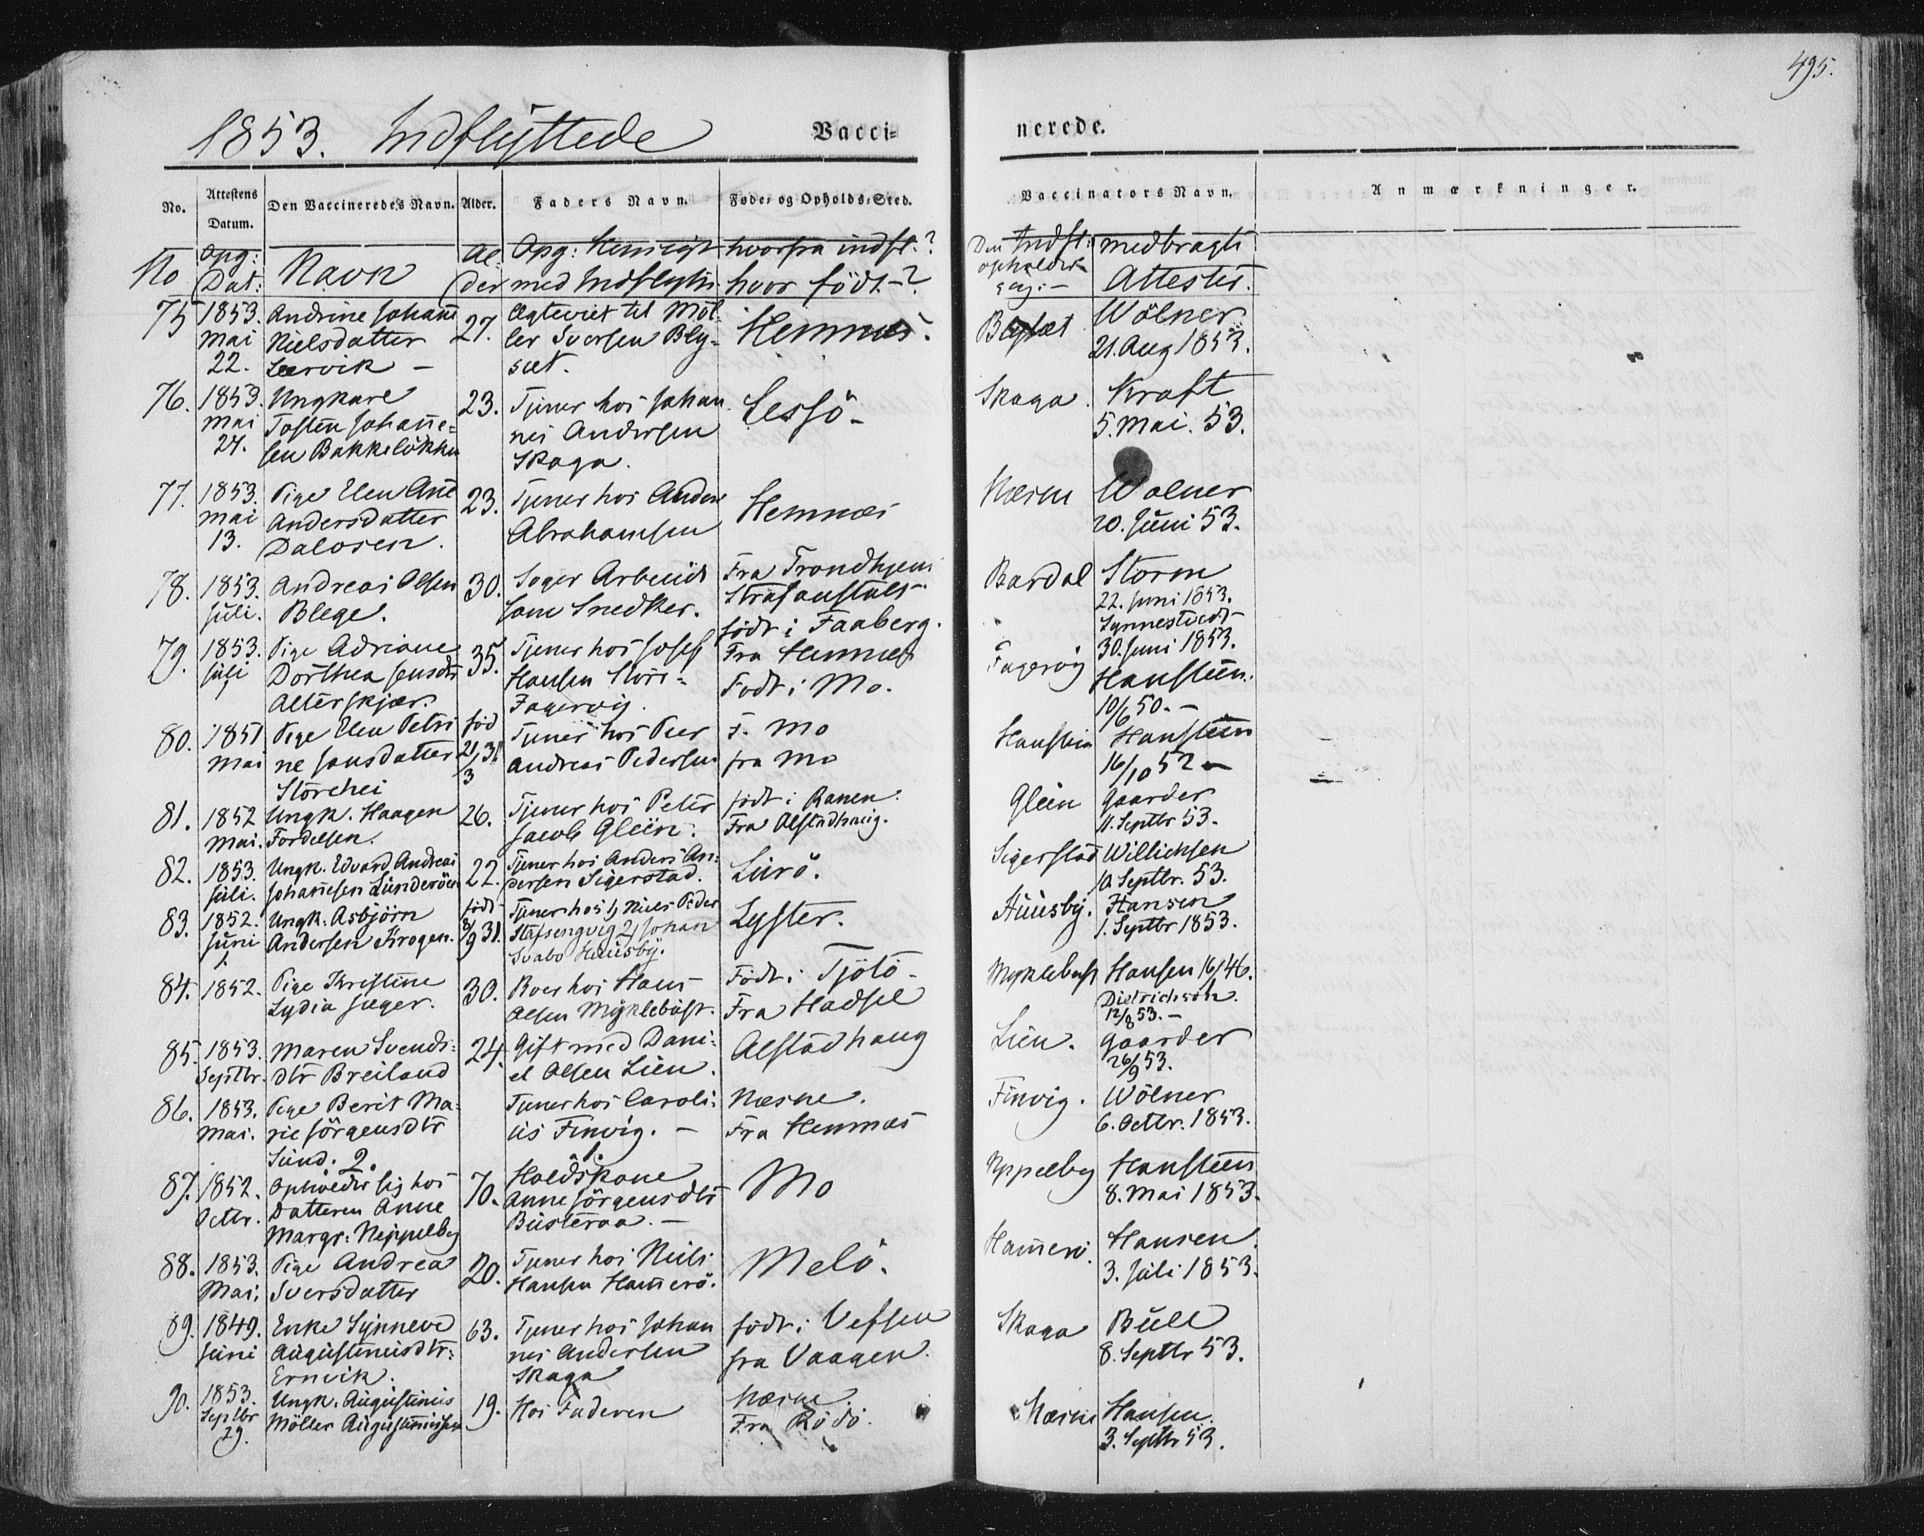 495.
1853. Indflyttede
Vacci-
nerede.
No. Attestens Datum. Den Vaccineredes Navn. Alder. Faders Navn. Føde- og Opholds-Sted. Vaccinators Navn. Anmærkninger.
No Opg: Dat: Navn Al der Opg: Hensigt med Indflytn hvorfra indfl.? hvor født-? Den Indfl: opholder sig:- medbragte Attester.
75 1853. Andrine Johane 27. Møl- Hemnæs. Wölner
Mai Nielsdatter ler Sversen Bly- 21. Aug 1853.
22. Leervik - set.
76. 1853. Ungkare 23. Tjener hos Johan Lessö- Skaga. Kraft
Mai Tosten Johane= nes Andersen 5. Mai. 53.
24. sen Bakkelökken Skaga.
77. 1853. Pige Elen Ane 23. Tjener hos Anders Hemnæs Næsne Wolner
Mai Andersdatter Abrahamsen 20. Juni 53.
13. Dalosen.
78. 1853. Andreas Olsen 30. Søger Arbeide Fra Trondhjems Bardal Storm
Juli. Blege. som Snedker. Strafanstalt- 22. Juni 1853.
født i Faaberg. Lynnestvedt
79. 1853. Pige Adriane 35. Tjener hos Josef Fra Hemnæs Fagervig 30. Juni 1853.
Juli Dorthea Jensdtr Hansen Store- Født i Mo. Hansteen.
Alterskjær. Fagervig. 10/6 50.-
80. 1851 Pige Elen Petri født Tjener hos Peer F. Mo Hanstein Hansteen
Mai ne Jonsdatter 21/3 31 Andreas Pedersen fra Mo 16/10 52-
Storehei
81. 1852 Ungk. Haagen 26. Tjener hos Peter født i Ranen. Glein Gaarder
Mai. Fordelsen. Jacob Glein. Fra Alstadhaug. 11. Septbr 53.
82. 1853. Ungk. Edvard Andreas 22. Tjener hos Anders An- Lurö. Sigerstad Willichsen
Juli. Johannesen Lunderöen dersen Sigerstad. 10. Septbr. 53.
83. 1852. Ungk. Asbjörn født Tjener hos 1, Niels Peder Lyster. Huusby. Hansen
Juni Andersen Krogen. 8/9 31. Stafsengvig 2, Johan 1. Septbr 1853.
Svabo Huusby.
84. 1852. Pige Kristine 30. Boer hos Hans Født i Tjötö- Myklebust Hansen 16/ 46.
Lydia Jæger. Olsen Myklebust. Fra Hadsel Dietrichson.
12/8 53.-
85. 1853. Maren Svends: 24. Gift med Dani: Alstadhaug Lien. Gaarder
Septbr. dtr Breiland el Olsen Lien. 26/9 53.
86. 1853. Pige Berit Ma: Tjener hos Caroli: Næsne. Finvig. Wölner
Mai. rie Jörgensdtr us Finvig. - Fra Hemnæs 6. Octbr. 1853.
Sund. 2.
87. 1852. Opholder sig hos 70. 1. Mo Neppelby Hansteen
Octbr. Datteren Anne Anne Jörgensdtr 8. Mai 1853.
Margr: Neppelby Busteraa. -
88. 1853. Pige Andrea 20. Tjener hos Niels Melö. Hamerö. Hansen
Mai. Sversdatter Hansen Hamerö. 3. Juli 1853.
89. 1849. Enke Synneve 63. Tjener hos Johan født i Vefsen Skaga Bull
Juni Augustinusdtr: nes Andersen fra Vaagen. 8. Septbr 53.
Ernvik. Skaga
90. 1853. Ungk. Augustinus 19. Hos Faderen Næsne. Næsne Hansen.
Septbr Möller Augustinussen Fra Rödö. 3. Septbr 53.
29.